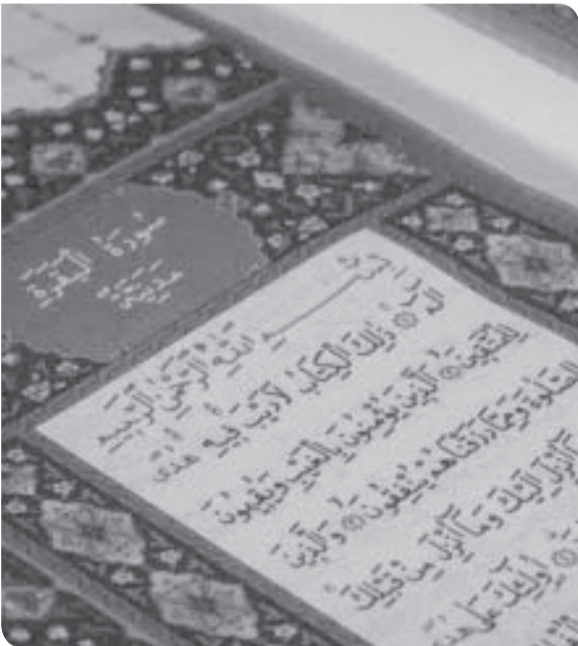 سُورَةُ الْبَقَرَةِ
مَدَنِيَّةٌ
بِسْمِ اللّٰهِ الرَّحْمٰنِ الرَّحِيمِ
الٓمٓ ۝ ذٰلِكَ الْكِتَابُ لَا رَيْبَ فِيهِ هُدًى
لِلْمُتَّقِينَ ۝ الَّذِينَ يُؤْمِنُونَ بِالْغَيْبِ وَيُقِيمُونَ
الصَّلٰوةَ وَمِمَّا رَزَقْنَاهُمْ يُنْفِقُونَ ۝ وَالَّذِينَ
أُنْزِلَ إِلَيْكَ وَمَا أُنْزِلَ مِنْ قَبْلِكَ
أُولٰئِكَ عَلٰى هُدًى